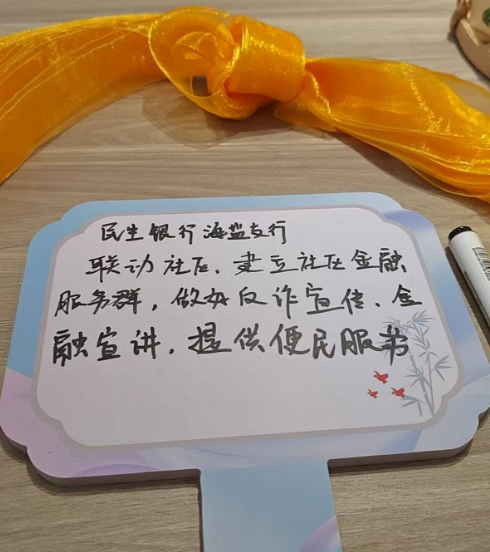 民生银行海盐支行
联动社区、建立社区金融
服务群，做好反诈宣传、金
融宣讲，提供便民服务